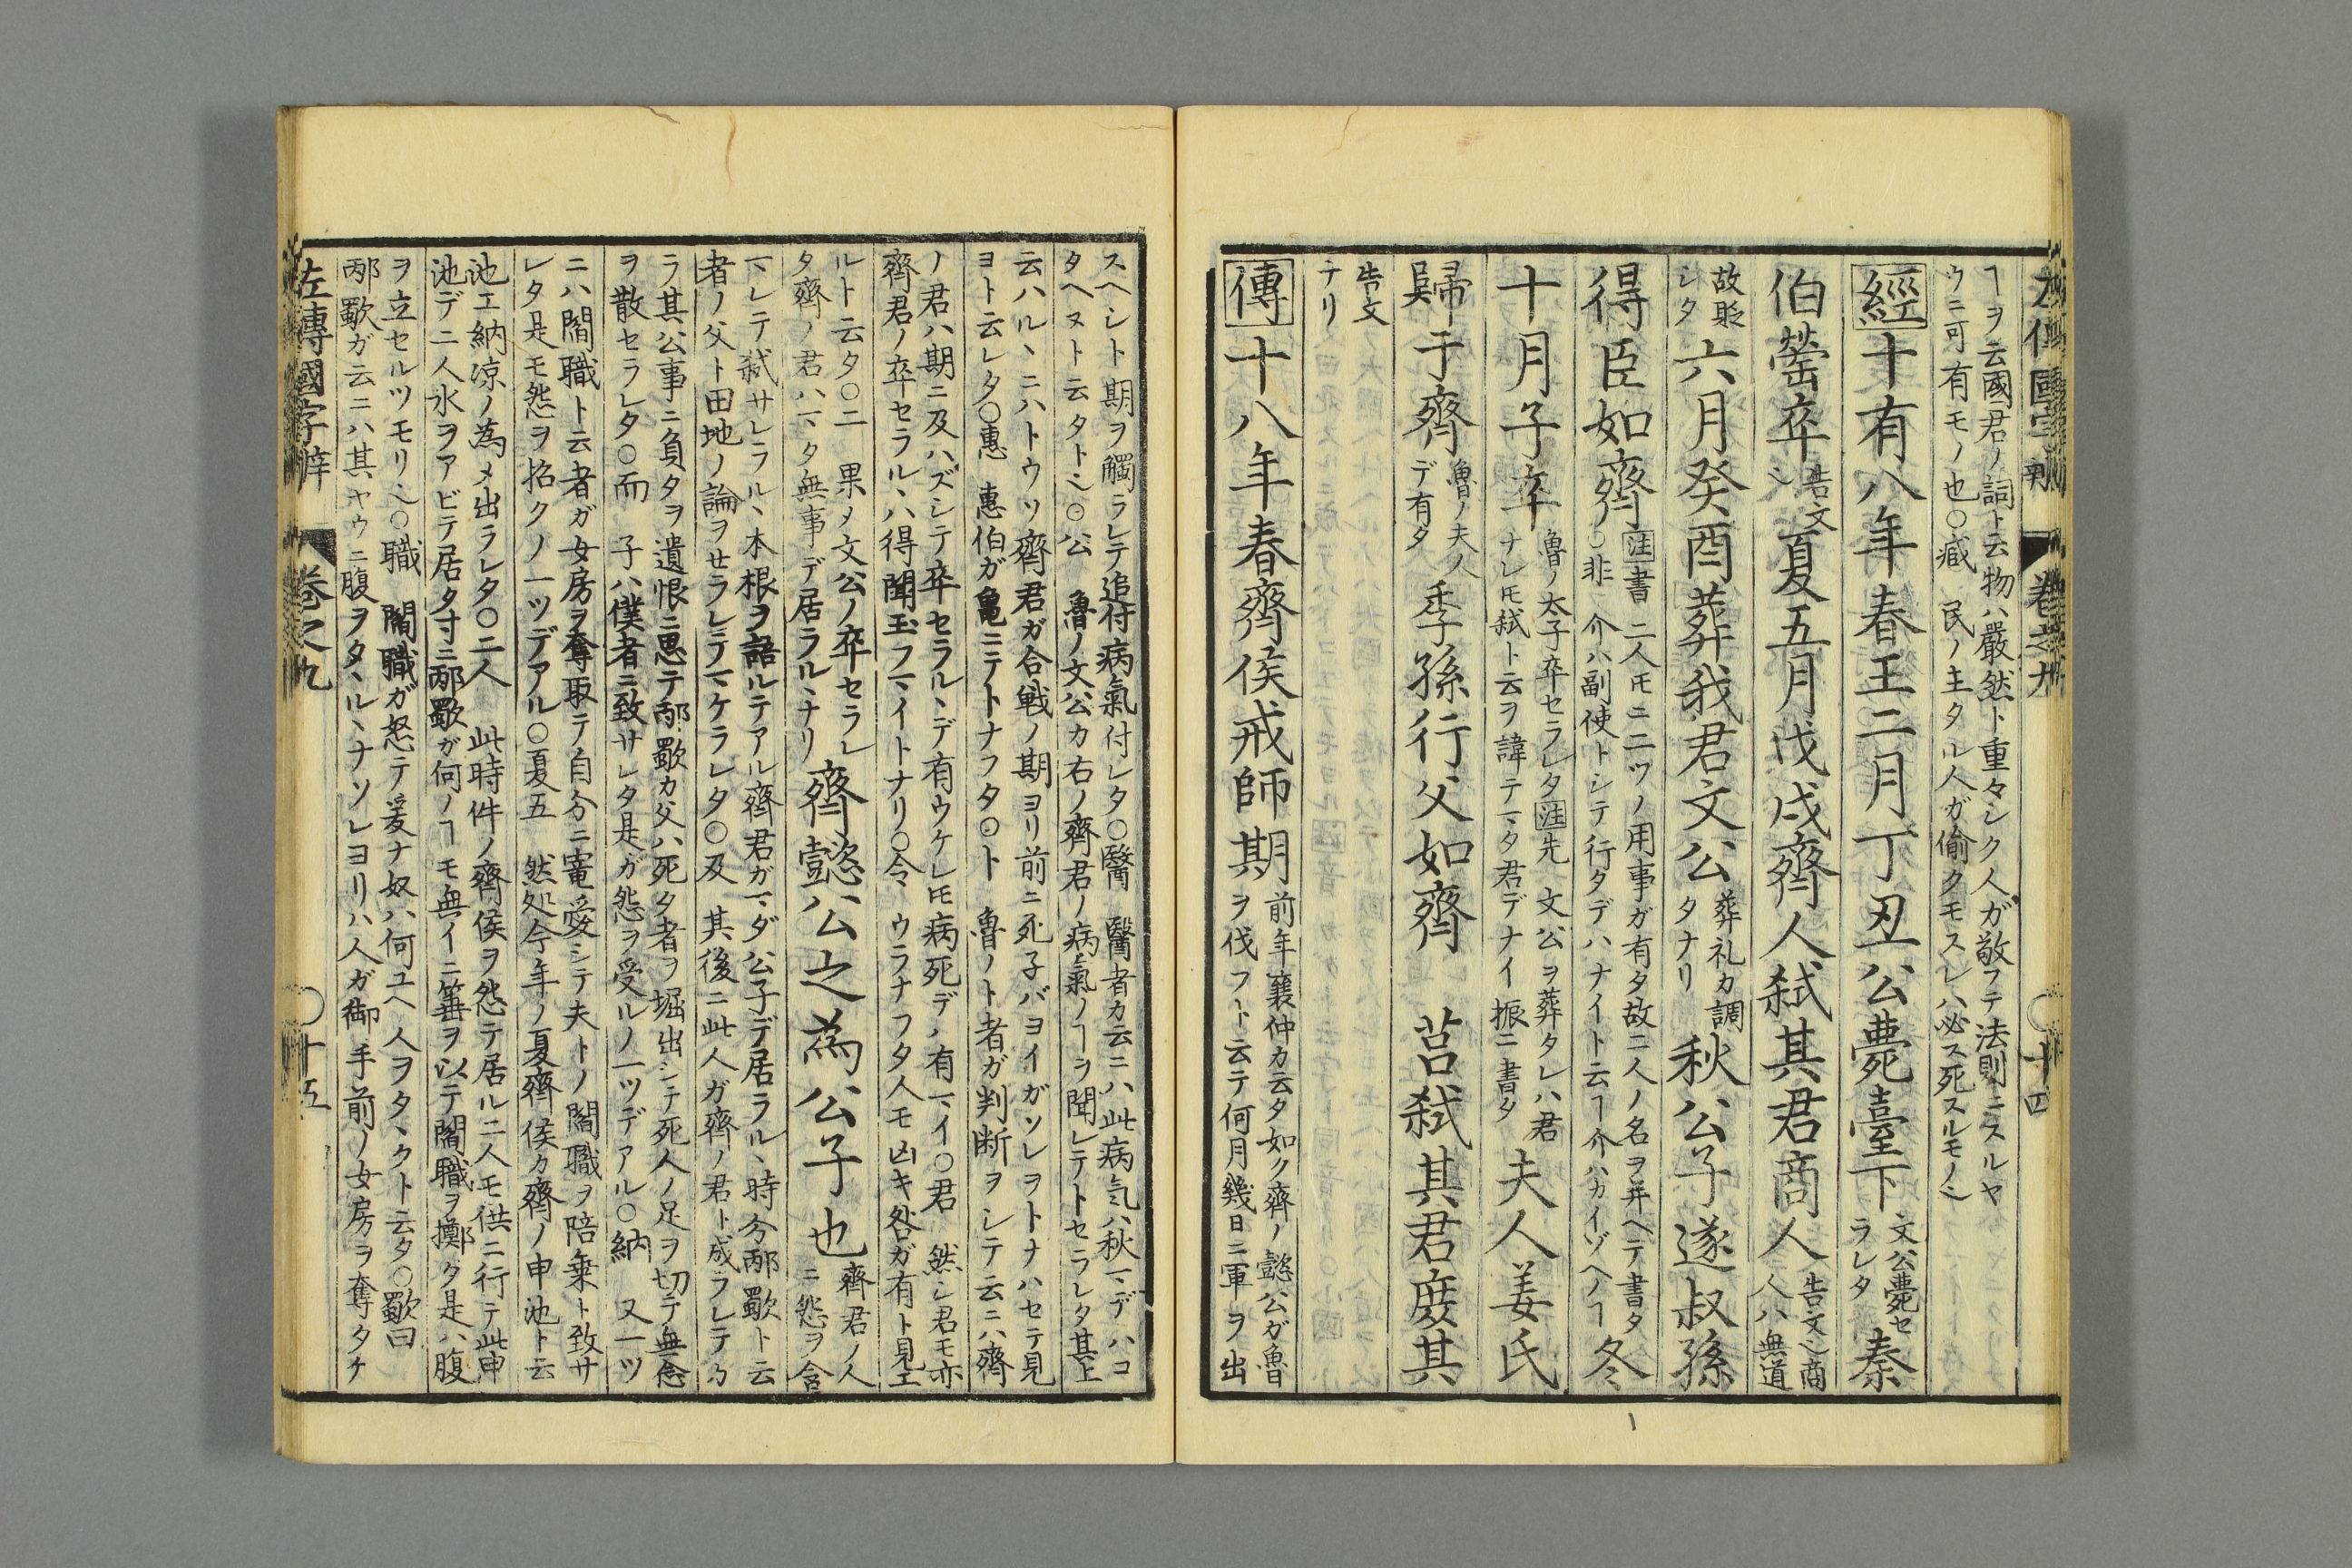 左傳國字辯 卷之九 〇十四
ヿヲ云國君ノ詞ト云物ハ嚴然ト重々シク人ガ敬フテ法則ニスルヤ
ウニ可有モノ也〇臧 民ノ主タル人ガ偷クモスレハ必ス死スルモノ〆
經十有八年春王二月丁丑公薨臺下 文公薨セラレタ 秦
伯罃卒 告文〆 夏五月戊戌齊人弑其君商人 告文〆商人ハ無道
故貶シタ 六月癸酉葬我君文公 葬礼カ調タナリ 秋公子遂叔孫
得臣如齊 注書 二人𪜈ニ二ツノ用事ガ有タ故二人ノ名ヲ并ヘテ書タ〇非 介ハ副使トシテ行タデハナイト云ヿ介ハカイゾヘノヿ 冬
十月子卒 魯ノ太子卒セラレタ注先 文公ヲ葬タレハ君ナレ𪜈弑ト云ヲ諱テマタ君デナイ振ニ書タ 夫人姜氏
歸于齊 魯ノ夫人デ有タ 季孫行父如齊 莒弑其君庶其
告文テリ
傳十八年春齊侯戒師期 前年襄仲カ云タ如ク齊ノ懿公ガ魯ヲ伐フト云テ何月幾日ニ軍ヲ出
スヘシト期ヲ觸ラレテ追付病氣付レタ〇醫 醫者カ云ニハ此病気ハ秋マデハコ
タヘヌト云タト〆〇公 魯ノ文公カ右ノ齊君ノ病氣ノヿヲ聞レテトセラレタ其上
云ハルヽニハトウソ齊君ガ合戰ノ期ヨリ前ニ死子バヨイガソレヲトナハセテ見
ヨト云レタ〇惠 惠伯ガ亀ニテトナフタ〇ト 魯ノト者ガ判断ヲシテ云ニハ齊
ノ君ハ期ニ及ハズシテ卒セラルヽデ有ウケレ𪜈病死デハ有マイ〇君 然シ君モ亦
齊君ノ卒セラルヽハ得聞玉フマイトナリ〇令 ウラナフタ人モ凶キ咎ガ有ト見エ
ルト云タ〇二 果ノ文公ノ卒セラレ
タ齊ノ君ハマタ無事デ居ラルヽナリ 齊懿公之為公子也 齊君ノ人ニ怨ヲ含
マレテ弑サレラルヽ本根ヲ語ルテアル齊君ガマダ公子デ居ラルヽ時分邴歜ト云
者ノ父ト田地ノ論ヲせラレテマケラレタ〇及 其後ニ此人ガ齊ノ君ト成ラレテカ
ラ其公事ニ負タヲ遺恨ニ思テ邴歜カ父ハ死タ者ヲ堀出シテ死人ノ足ヲ切テ無念
ヲ散セラレタ〇而 子ハ僕者ニ致サレタ是ガ怨ヲ受ルノ一ツデアル〇納 又一ツ
ニハ閻職ト云者ガ女房ヲ奪取テノ自分ニ寵愛シテ夫トノ閻職ヲ陪乗ト致サ
レタ是モ怨ヲ招クノ一ツデアル〇夏五 然処今年ノ夏齊侯カ齊ノ申池ト云
池エ納凉ノ為メ出ラレタ〇二人 此時件ノ齊侯ヲ怨テ居ル二人モ供ニ行テ此申
池デ二人水ヲアビテ居タ寸ニ邴歜ガ何ノヿモ無イニ箠ヲ以テ閻職ヲ擲タ是ハ腹
ヲ立セルツモリ〆〇職 閻職ガ怒テ爰ナ奴ハ何ユヘ人ヲタヽクト云タ〇歜曰
邴歜ガ云ニハ其ヤウニ腹ヲタヽルヽナソレヨリハ人ガ御手前ノ女房ヲ奪タナ
左傳國字辯 卷之九 〇十五